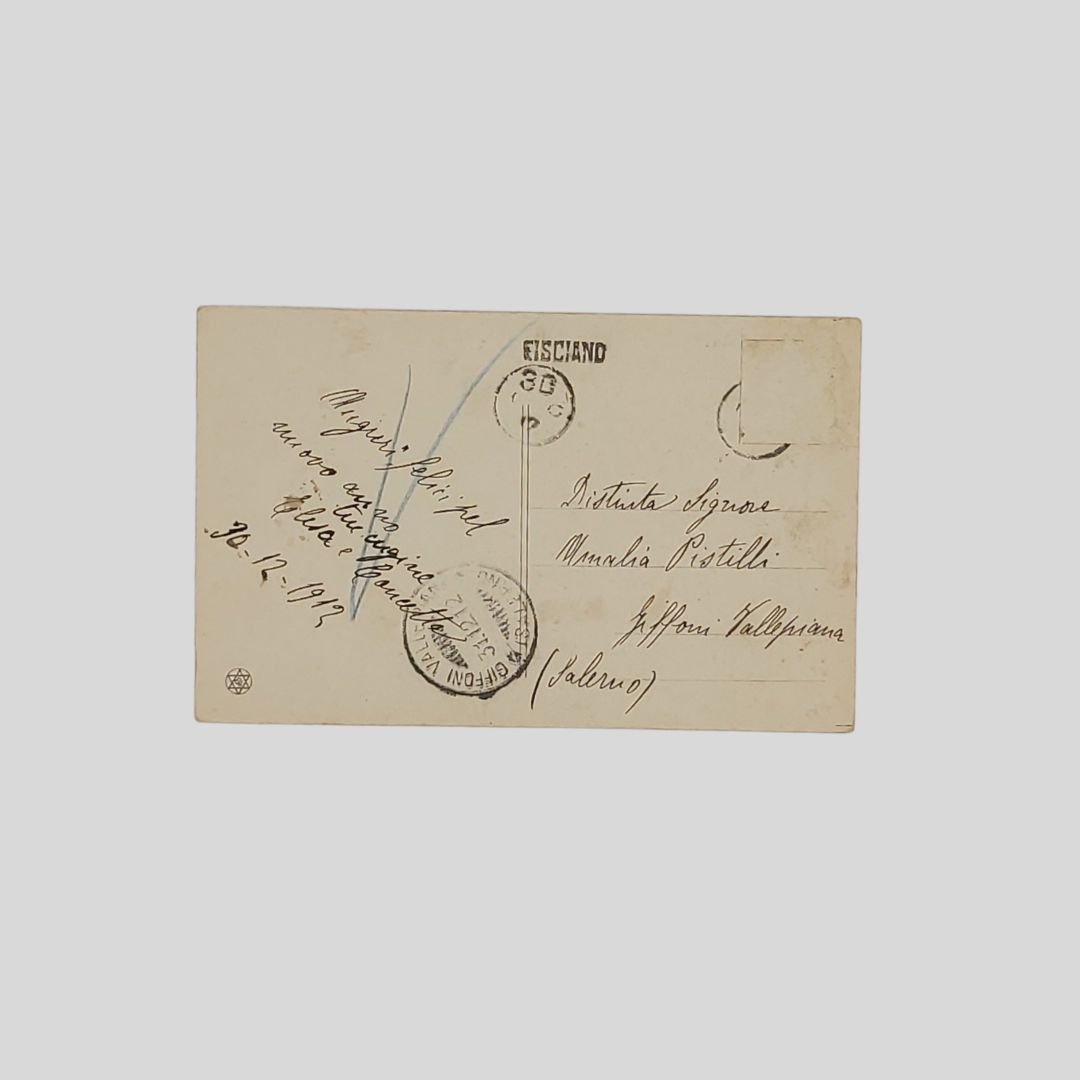 FISCIANO
30
Auguri felici pel
nuovo anno
tue cugine
Elisa e Concetta
30-12-1912
Distinta Signora
Amalia Pistilli
Giffoni Vallepiana
(Salerno)
GIFFONI VALLE
SALERNO
31.12.12